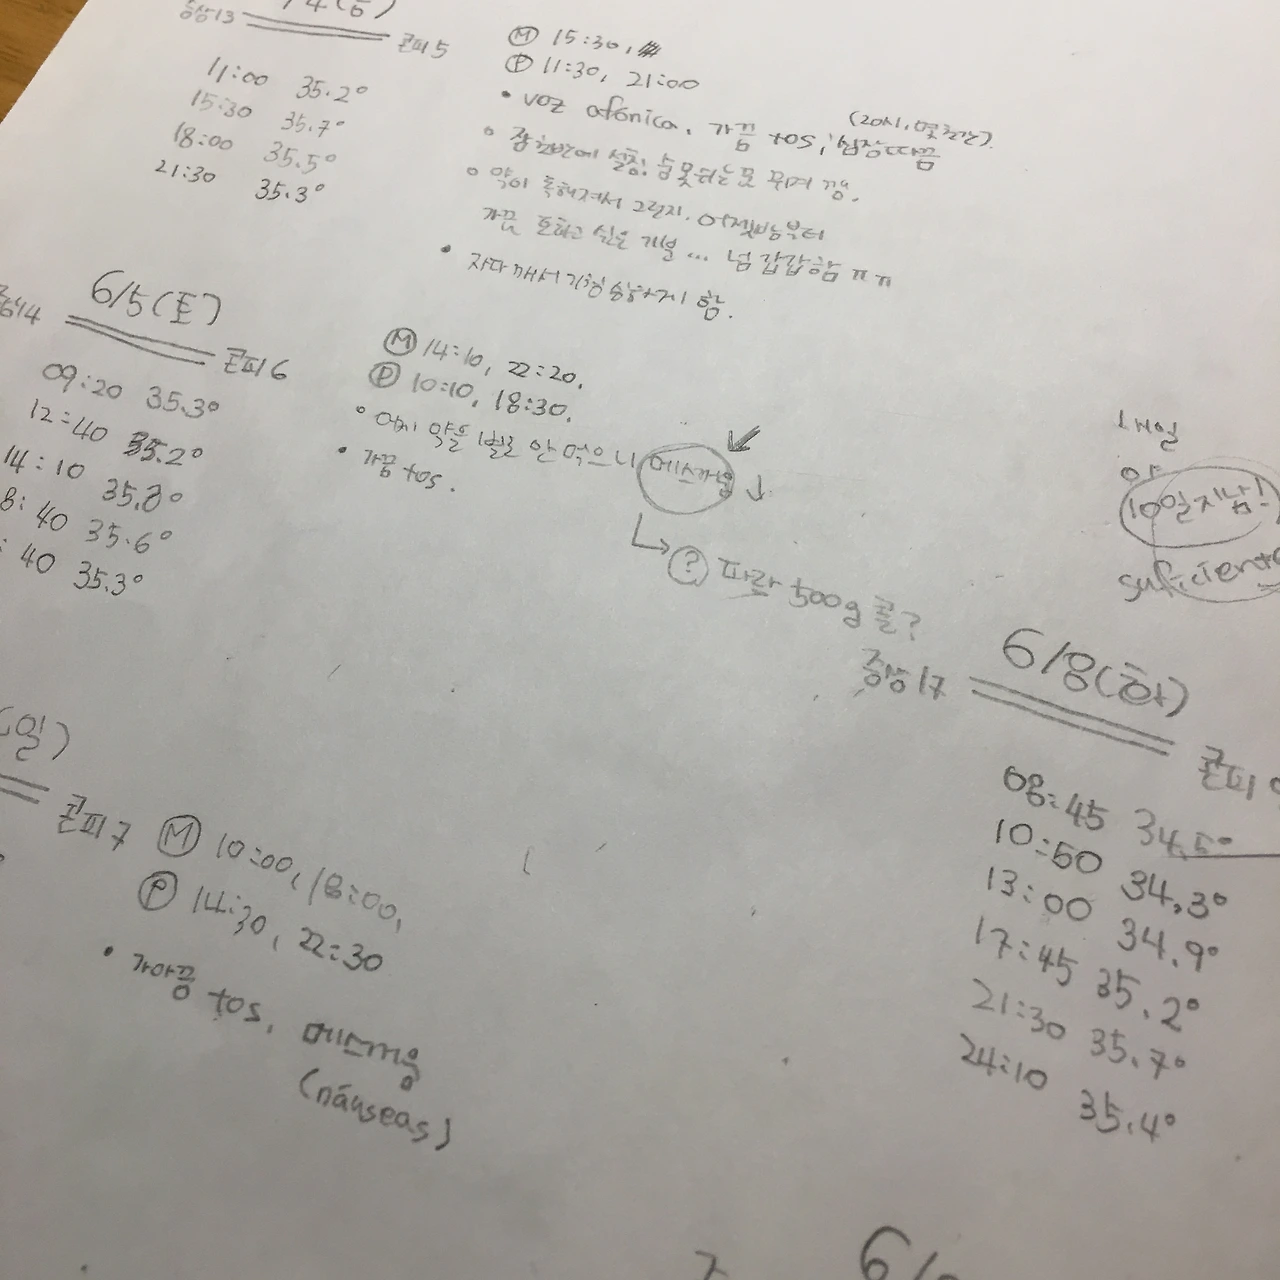 증상13
콘피5
11:00 35.2°
15:30 35.7°
18:00 35.5°
21:30 35.3°
Ⓜ 15:30,
Ⓟ 11:30, 21:00
• voz afónica. 가끔 tos, 심장따끔
(20시, 몇초간)
숨 못쉬는 꿈 꾸며 깸.
• 약이 독해져서 그런지. 어젯밤부터
가끔 토하고 싶은 기분... 넘 갑갑함 ㅠㅠ
• 자다 깨서 기침 심하게 함.
6/5(토)
콘피6
09:20 35.3°
12:40 35.2°
14:10 35.8°
8:40 35.6°
:40 35.3°
Ⓜ 14:10, 22:20.
Ⓟ 10:10, 18:30.
• 어제 약을 별로 안 먹으니 메스꺼움 ↓
• 가끔 tos.
↳ ? 파란 500g 콜?
내일
약
10일 지남!
suficiente
(일)
콘피7
Ⓜ 10:00, 18:00,
Ⓟ 14:30, 22:30
• 가아끔 tos, 메스꺼움
(náuseas)
증상17
6/8(화)
콘피
08:45 34.5°
10:50 34.3°
13:00 34.9°
17:45 35.2°
21:30 35.7°
24:10 35.4°